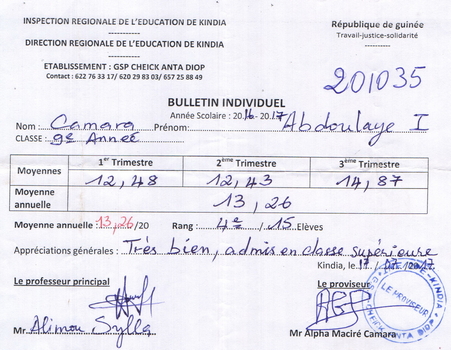 INSPECTION REGIONALE DE L'EDUCATION DE KINDIA
-----------
DIRECTION REGIONALE DE L'EDUCATION DE KINDIA
-----------
ETABLISSEMENT : GSP CHEICK ANTA DIOP
Contact : 622 76 33 17/ 620 29 83 03/ 657 25 88 49
République de guinée
Travail-justice-solidarité
-----------
201035
BULLETIN INDIVIDUEL
Année Scolaire : 2016 - 2017
Nom : Camara Prénom: Abdoulaye I
CLASSE : 9e Année
Moyennes 1er Trimestre 2ème Trimestre 3ème Trimestre
12,48 12,43 14,87
Moyenne annuelle 13,26
Moyenne annuelle : 13,26/20 Rang : 4e / 15 Elèves
Appréciations générales : Très bien, admis en classe supérieure
Kindia, le 17 / / 2017
Le professeur principal Le proviseur
LE PROVISEUR
Mr Alimou Sylla Mr Alpha Maciré Camara